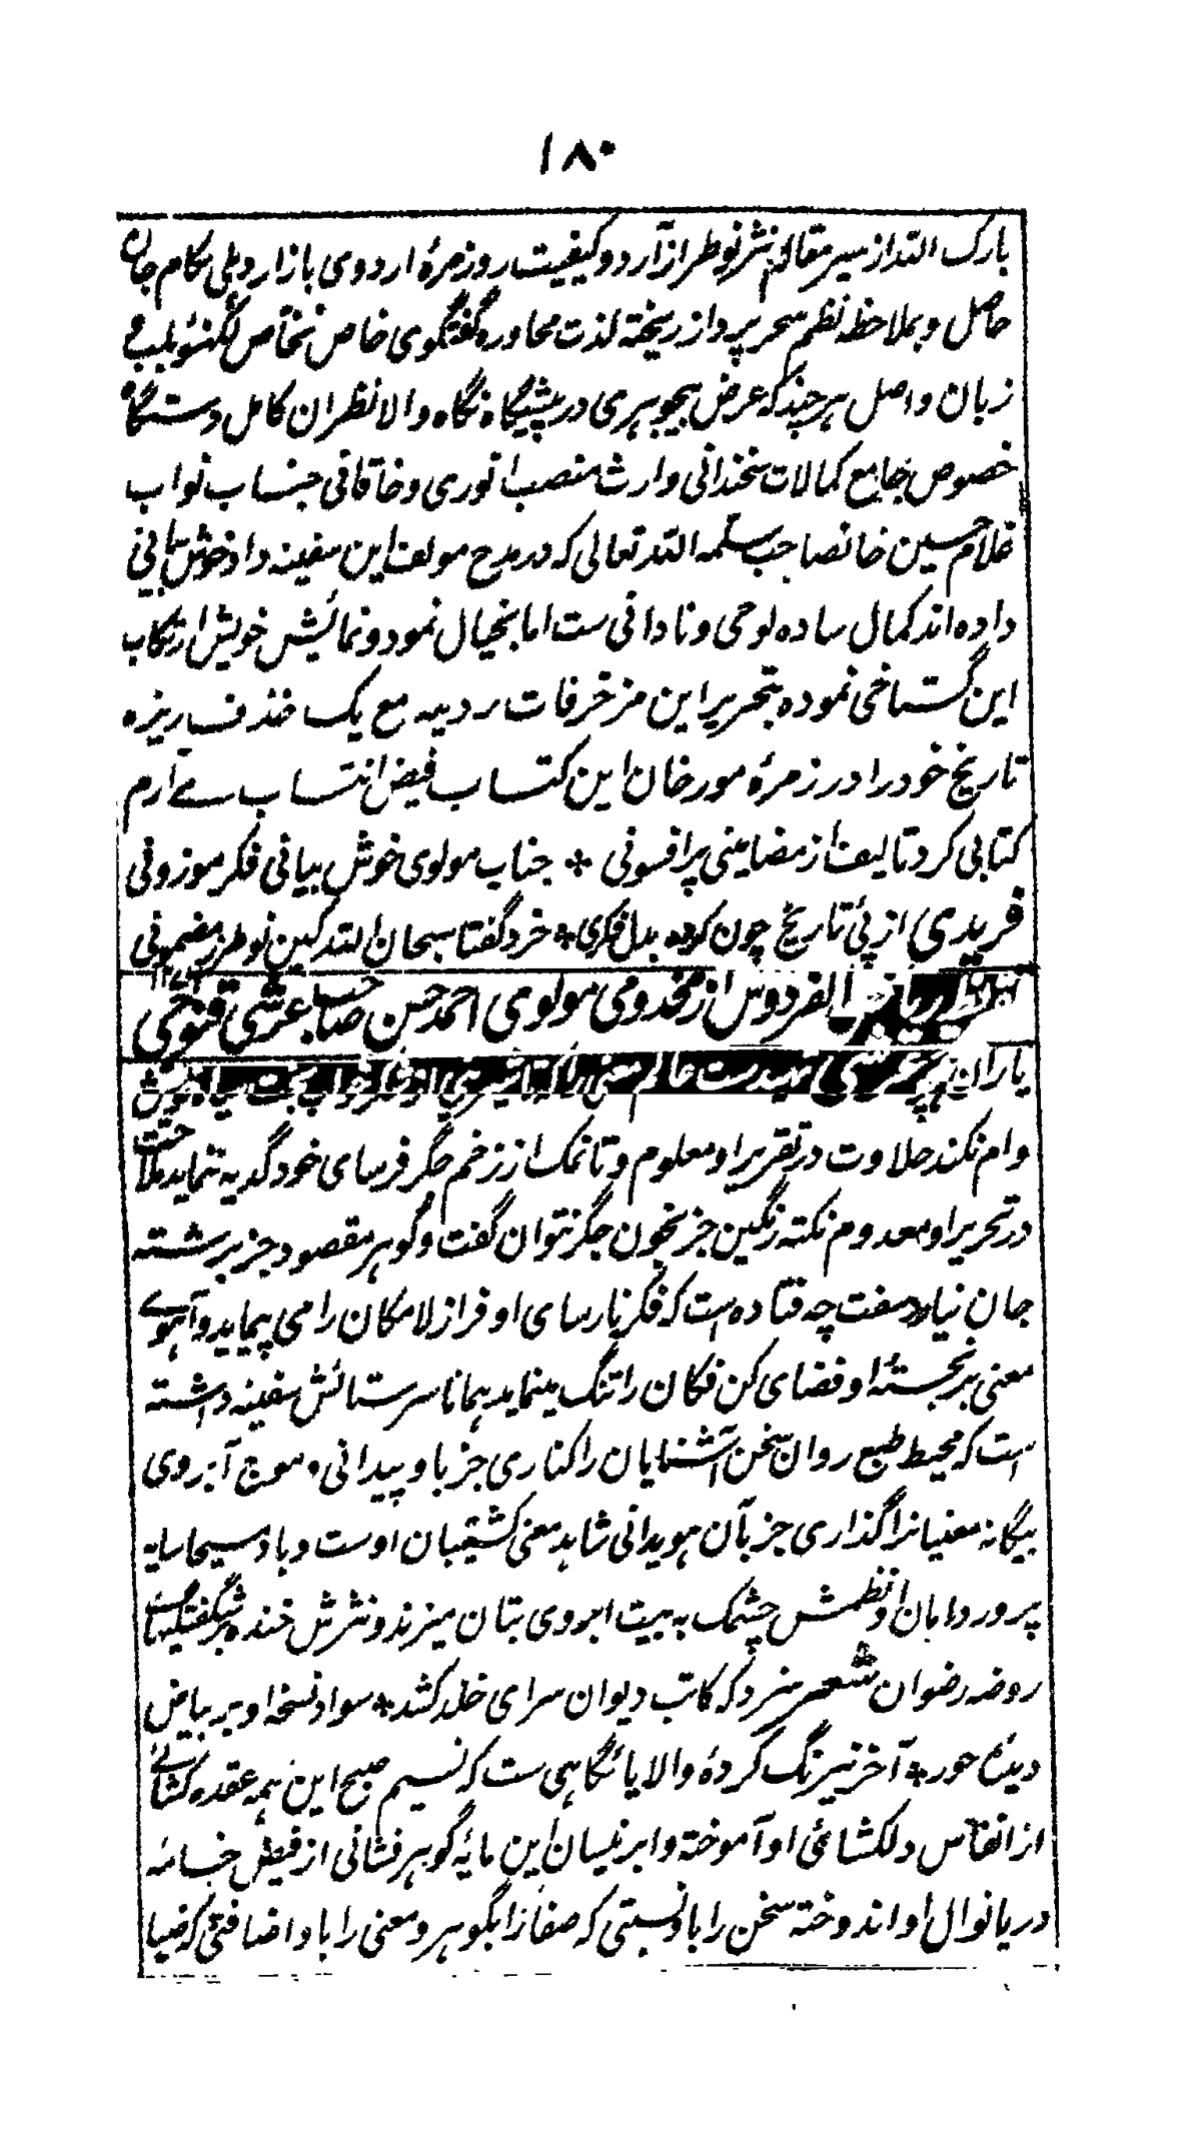 ۱۸۰
بارک اللہ از سیر مقالہ نثر نوطراز آرد و کیفیت روزمرۂ اردوی بازار دہلی بکام جان
حاصل و بملاحظہ نظم سحر پرداز ریختہ لذت محاورہ گفتگوی خاص نخاص لکھنؤ بلب
زبان واصل ہرچند کہ عرض بیجوہری در پیشگاہ نگاہ والانظران کامل دستگاہ
خصوص جامع کمالات سخندانی وارث منصب انوری و خاقانی جناب نواب
غلام حسین خانصاحب سلمہ اللہ تعالی کہ در مدح مولف این سفینہ داد خوش بیانی
دادہ اند کمال سادہ لوحی و نادانی ست اما بخیال نمود و نمائیش خویش ارتکاب
این گستاخی نمودہ بتحریر این مزخرفات ردیہ مع یک خذف ریزہ
تاریخ خود را در زمرۂ مورخان این کتاب فیض انتساب مے آرم
کتابی کرد تالیف از مضامینی پر افسونی * جناب مولوی خوش بیانی فکر موزونی
فریدی از پئ تاریخ چون کردہ بدل فکری * خرد گفتا سبحان اللہ کین نوطرز مضمونی
الفردوس از مخدومی مولوی احمد حسن صاحب عرشی قنوجی
یاران
وام نکند حلاوت در تقریر او معلوم و تا نمک از زخم جگر فرسای خود گدیہ ننماید ملاحت
در تحریر او معدوم نکتہ رنگین جز بخون جگر نتوان گفت و گوہر مقصود جز برشتہ
جان نیارد سفت چہ فتادہ است کہ فکر نارسای او فراز لامکان را می پیماید و آہوے
معنی برجستۂ او فضای کن فکان را تنگ مینماید ہمانا سر ستائش سفینہ داشتہ
است کہ محیط طبع روان سخن آشنایان را کناری جز باو پیدا نی و موج آبروی
بیگانہ معنیانرا گذاری جز بآن ہویدا نی شاہد معنی کشتیبان اوست و باد مسیحا سایہ
پرورداہان او نظمش چشمک بہ بیت ابروی بتان میزند و نثرش خندہ بر شگفتگیہای
روضہ رضوان شعر سزد کہ کاتب دیوان سرای خلد کشد * سواد نسخہ او بر بیاض
دیدۂ حور * آخر نیرنگ کردۂ والا پائگاہی ست کہ نسیم صبح این ہمہ عقدہ کشائے
از انفاس دلکشائی او آموختہ و ابر نیسان این مایۂ گوہر فشانی از فیض خامہ
دریا نوال او اندوختہ سخن را باو نسبتی کہ صفا را بگوہر و معنی را باو اضافتی کہ ضیا